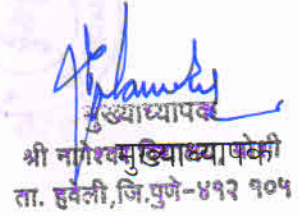 मुख्याध्यापक
श्री नागेश्वर मुख्याध्यापक
ता. हवेली,जि.पुणे-४१२ १०५